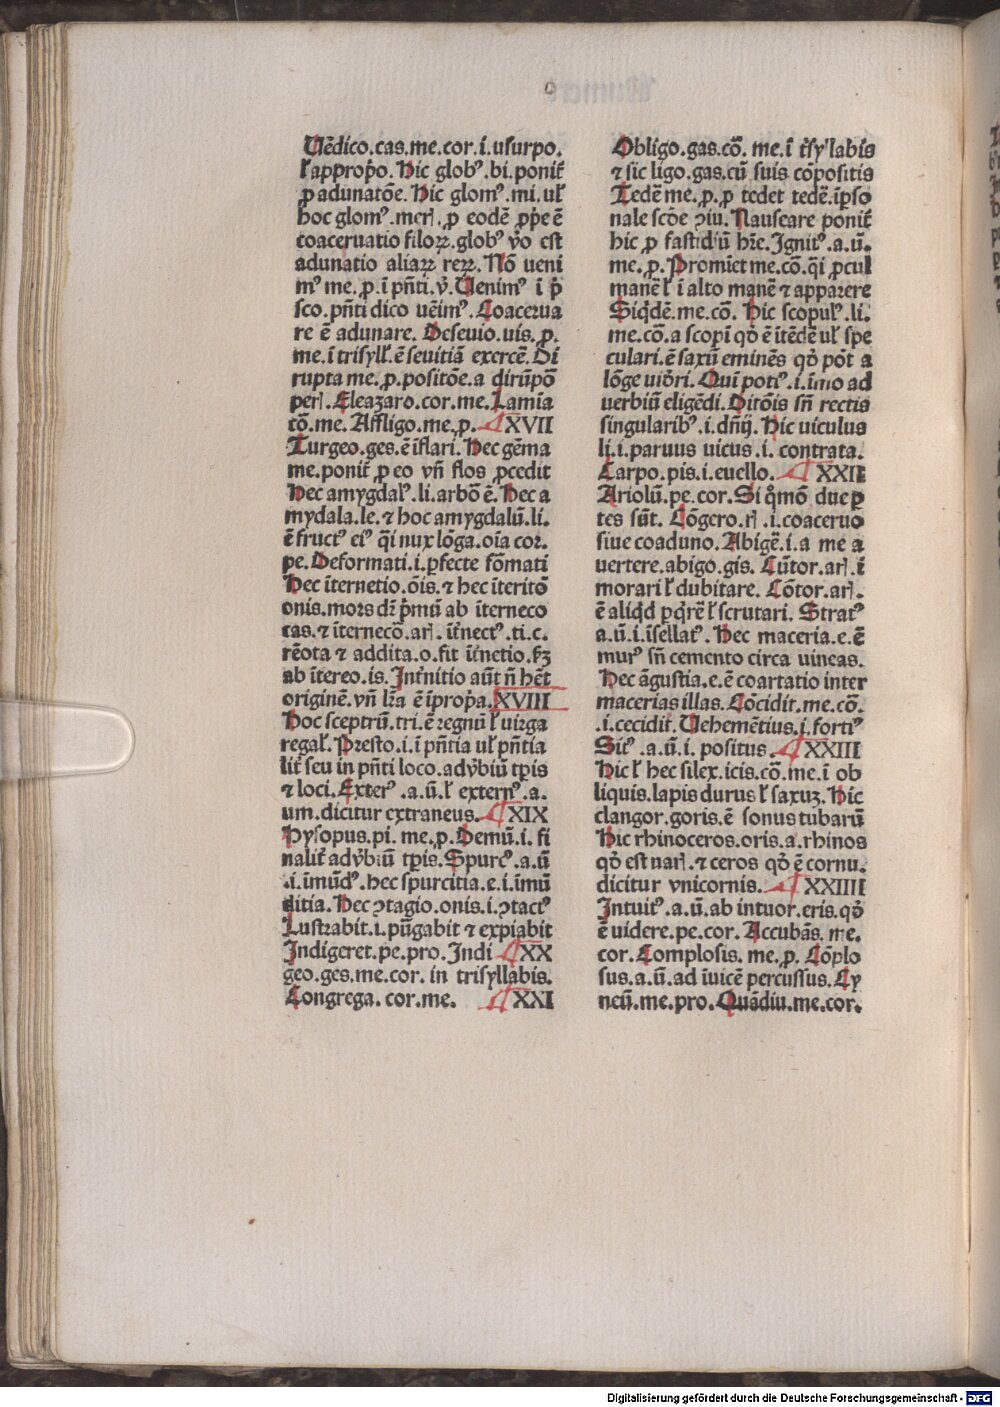 Uēdico.cas.me.cor.i.usurpo.
ł appropo.Hic globꝰ.bi.ponit̄
ꝓ adunatōe.Hic glomꝰ.mi.uł
hoc glomꝰ.merꝭ.ꝓ eodē pp̄e ē
coaceruatio filoꝝ.globꝰ v̊o est
adunatio aliaꝝ reꝝ.Nō ueni
mꝰ me.ꝓ.i pn̄ti.v̊.Uenimꝰ ī p̄
sco.pn̄ti dico uēimꝰ.Coacerua
re ē adunare. Deseuio.uis.ꝓ.
me.ī trisyll̄.ē seuitiā exercē.Di
rupta me.ꝓ.positōe.a dirūpo
perꝭ.Eleazaro.cor.me.Lamīa
cō.me.Affligo.me.ꝓ. XVII
Turgeo.ges.ē īflari.Hec gēma
me.ponit̄ ꝓ eo vn̄ flos ꝓcedit
Hec amygdalꝰ.li.arbō ē.Hec a
mydala.le.⁊ hoc amygdalū.li.
ē fructꝰ eiꝰ q̄i nux lōga.oīa cor.
pe.Deformati.i.ꝑfecte fōmati
Hec īternetio.ōis.⁊ hec īteritō
onis.mors dr̄ p̄mū ab īterneco
cas.⁊ īternecō.arꝭ. īt̄nectꝰ.ti.c.
rēota ⁊ addita.o.fit īt̄netio.sꝫ
ab ītereo.is.Int̄nitio aūt n̄ hēt
originē.vn̄ lr̄a ē īprop̄a.XVIII
Hoc sceptrū.tri.ē regnū ł uirga
regał.Presto.i.ī pn̄tia uł pn̄tia
lit̄ seu in pn̄ti loco.adv̊biū tp̄is
⁊ loci.Exterꝰ .a.ū.ł externꝰ.a.
um.dicitur extraneus. XIX
Hysopus.pi. me.ꝓ.Demū.i. fi
nalit̄ adv̊biū tp̄is.Spurcꝰ.a.ū
.i.īmūdꝰ.hec spurcitia.e.i.īmū
ditia.Hec ꝯtagio.onis.i.ꝯtactꝰ
Lustrabit.i.pūgabit ⁊ expiabit
Indigeret.pe.pro.Indi XX
geo.ges.me.cor. in trisyllabis.
Congrega.cor.me. XXI
Obligo.gas.cō. me.ī t̄sy'labis
⁊ sic ligo.gas.cū suis cōpositis
Tedē me.ꝓ.ꝓ tedet tedē.īꝑso
nale scōe ꝯiu. Nauseare ponit̄
hic ꝓ fastidiū hr̄e.Ignitꝰ.a.ū.
me.ꝓ.Promīet me.cō.q̄i ꝓcul
manē ł ī alto manē ⁊ apparere
Siq̄dē.me.cō. Hic scopulꝰ.li.
me.cō.a scopī qd̊ ē ītēdē uł spe
culari.ē saxū eminēs qd̊ pōt a
lōge uid̄ri.Quī potiꝰ.i.īmo ad
uerbiū eligēdi.Ditōis sn̄ rectis
singularibꝰ.i.dn̄ij.Hic uiculus
li.i.paruus uicus.i. contrata.
Carpo.pis.i.euello. XXII
Ariolū.pe.cor.Si q̊mō due ꝑ
tes sūt. Cōgero.rꝭ .i.coaceruo
siue coaduno.Abigē.i.a me a
uertere.abigo.gis. Cūtor.arꝭ.ī
morari ł dubitare. Cōtor.arꝭ.
ē aliq̄d ꝑq̄rē ł scrutari. Stratꝰ
a.ū.i.īsellatꝰ.Hec maceria.e.ē
murꝰ sn̄ cemento circa uineas.
Hec āgustia.e.ē coartatio inter
macerias illas. Cōcidit.me.cō.
.i.cecidit.Uehemētius.i.fortiꝰ
Sitꝰ .a.ū.i. positus. XXIII
Hic ł hec silex.icis.cō.me.ī ob
liquis.lapis durus ł saxuꝫ.Hic
clangor.goris.ē sonus tubarū
Hic rhinoceros.oris.a.rhinos
qd̊ est narꝭ.⁊ ceros qd̊ ē cornu.
dicitur vnicornis. XXIIII
Intuitꝰ.a.ū.ab intuor.eris.qd̊
ē uidere.pe.cor. Accubās. me.
cor. Complosis. me.ꝓ. Cōplo
sus.a.ū.ad īuicē percussus.Cy
neū.me.pro.Quādiu.me.cor.
Digitalisierung gefördert durch die Deutsche Forschungsgemeinschaft - DFG